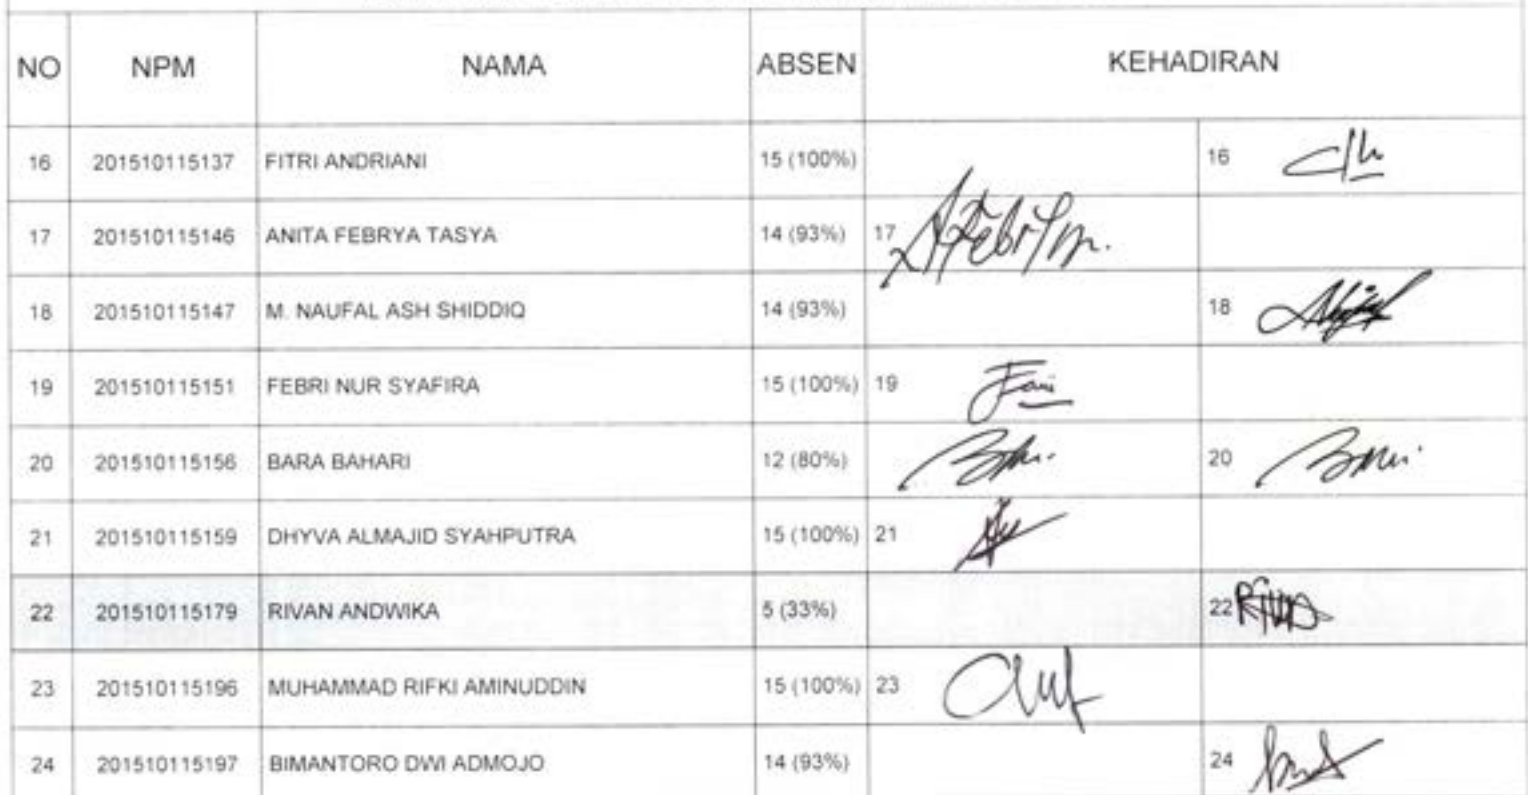 NO NPM NAMA ABSEN KEHADIRAN
16 201510115137 FITRI ANDRIANI 15 (100%) 16
17 201510115146 ANITA FEBRYA TASYA 14 (93%) 17
18 201510115147 M. NAUFAL ASH SHIDDIQ 14 (93%) 18
19 201510115151 FEBRI NUR SYAFIRA 15 (100%) 19
20 201510115156 BARA BAHARI 12 (80%) 20
21 201510115159 DHYVA ALMAJID SYAHPUTRA 15 (100%) 21
22 201510115179 RIVAN ANDWIKA 5 (33%) 22
23 201510115196 MUHAMMAD RIFKI AMINUDDIN 15 (100%) 23
24 201510115197 BIMANTORO DWI ADMOJO 14 (93%) 24